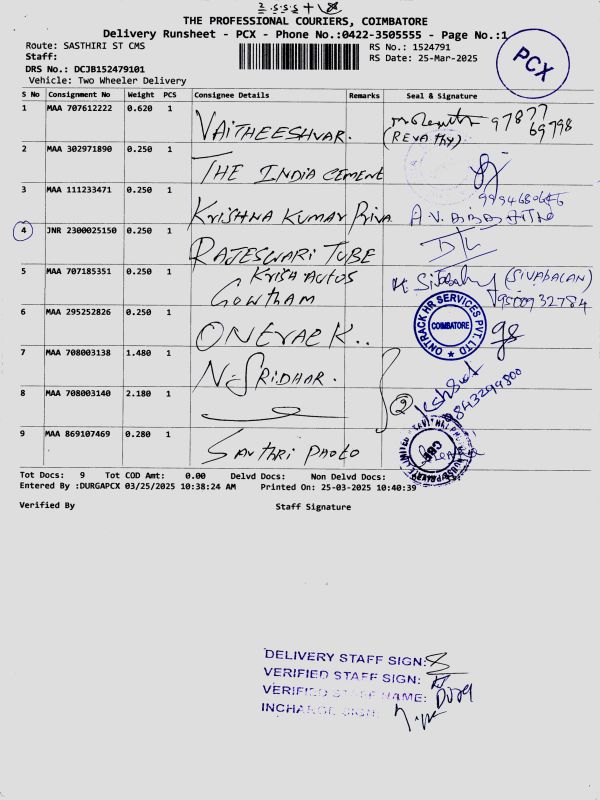 THE PROFESSIONAL COURIERS, COIMBATORE
Delivery Runsheet - PCX - Phone No.:0422-3505555 - Page No.:1
Route: SASTHIRI ST CMS RS No.: 1524791
Staff: RS Date: 25-Mar-2025
PCX
DRS No.: DCJB152479101
Vehicle: Two Wheeler Delivery
S No Consignment No Weight PCS Consignee Details Remarks Seal & Signature
1 MAA 707612222 0.620 1 VAITHEESHVAR. 97877 69798
(REVATHY)
2 MAA 302971890 0.250 1 THE INDIA CEMENT
9994680646
3 MAA 111233471 0.250 1 KRISHNA KUMAR PRIYA
4 JNR 2300025150 0.250 1 RAJESWARI TUBE
KRISH AUTOS
5 MAA 707185351 0.250 1 GOWTHAM (SIVABALAN)
9500932784
6 MAA 295252826 0.250 1 ONTRACK..
ONTRACK HR SERVICES PVT. LTD COIMBATORE
7 MAA 708003138 1.480 1 N. SRIDHAR.
8 MAA 708003140 2.180 1 2
9843299800
9 MAA 869107469 0.280 1 SAVTHRI PHOTO
Tot Docs: 9 Tot COD Amt: 0.00 Delvd Docs: Non Delvd Docs:
Entered By :DURGAPCX 03/25/2025 10:38:24 AM Printed On: 25-03-2025 10:40:39
Verified By Staff Signature
DELIVERY STAFF SIGN:
VERIFIED STAFF SIGN:
VERIFIED STAFF NAME: Durga
INCHARGE SIGN: